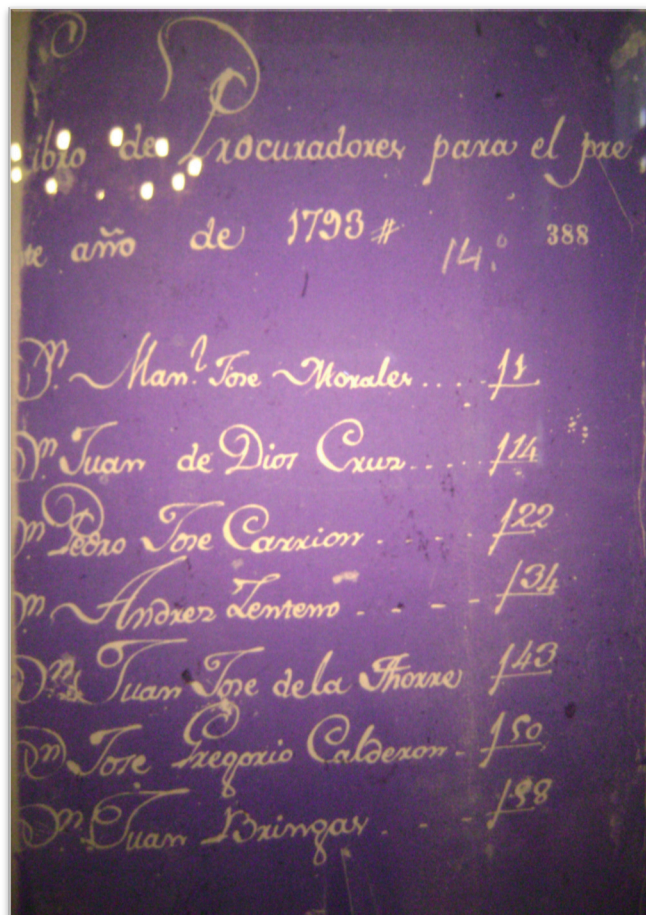 Libro de Procuradores para el pre
te año de 1793 # 14.º 388
Dn. Man.l Jose Morales .... f1
Dn. Juan de Dios Cruz .... f14
Dn Pedro Jose Carrion .... f22
Dn Andres Zenteno - - - - f34
Dn. Juan Jose de la Thorre f43
Dn Jose Gregorio Calderon - f50
Dn. Juan Bringas . - - f58